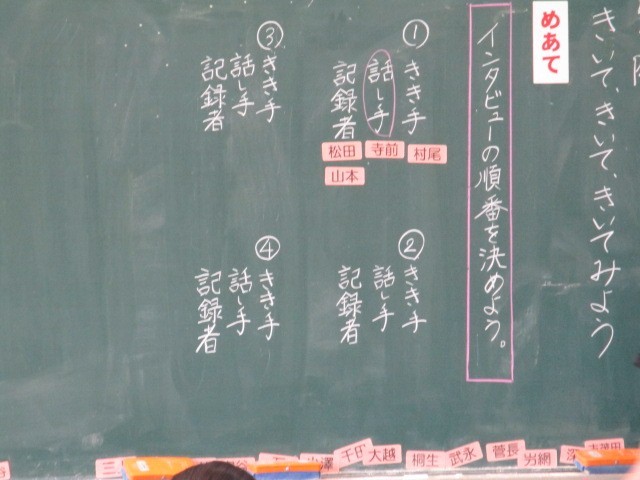 きいて、きいて、きいてみよう
めあて
インタビューの順番を決めよう。
①
きき手
話し手
記録者
村尾
寺前
松田
山本
②
きき手
話し手
記録者
③
きき手
話し手
記録者
④
きき手
話し手
記録者
千田
大越
桐生
武永
菅長